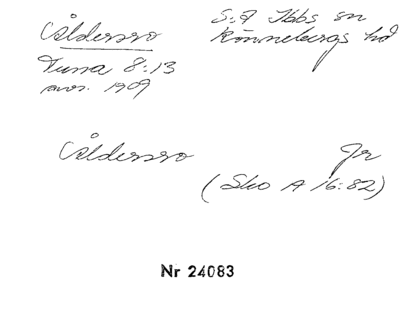 Åldersro S:a Ibbs sn
Rönnebergs hd
Tuna 8:13
avs. 1909
Åldersro Jr
(Sko A 16:82)
Nr 24083